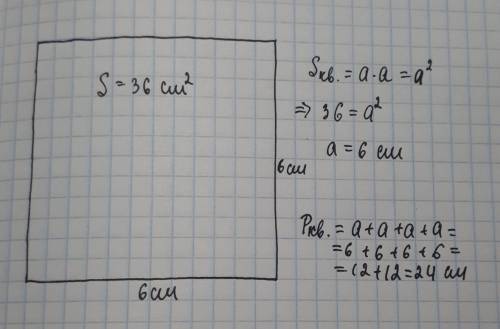 S = 36 см²
6 см
6 см
Sкв. = a·a = a²
⇒ 36 = a²
a = 6 см
Pкв. = a + a + a + a =
= 6 + 6 + 6 + 6 =
= 12 + 12 = 24 см